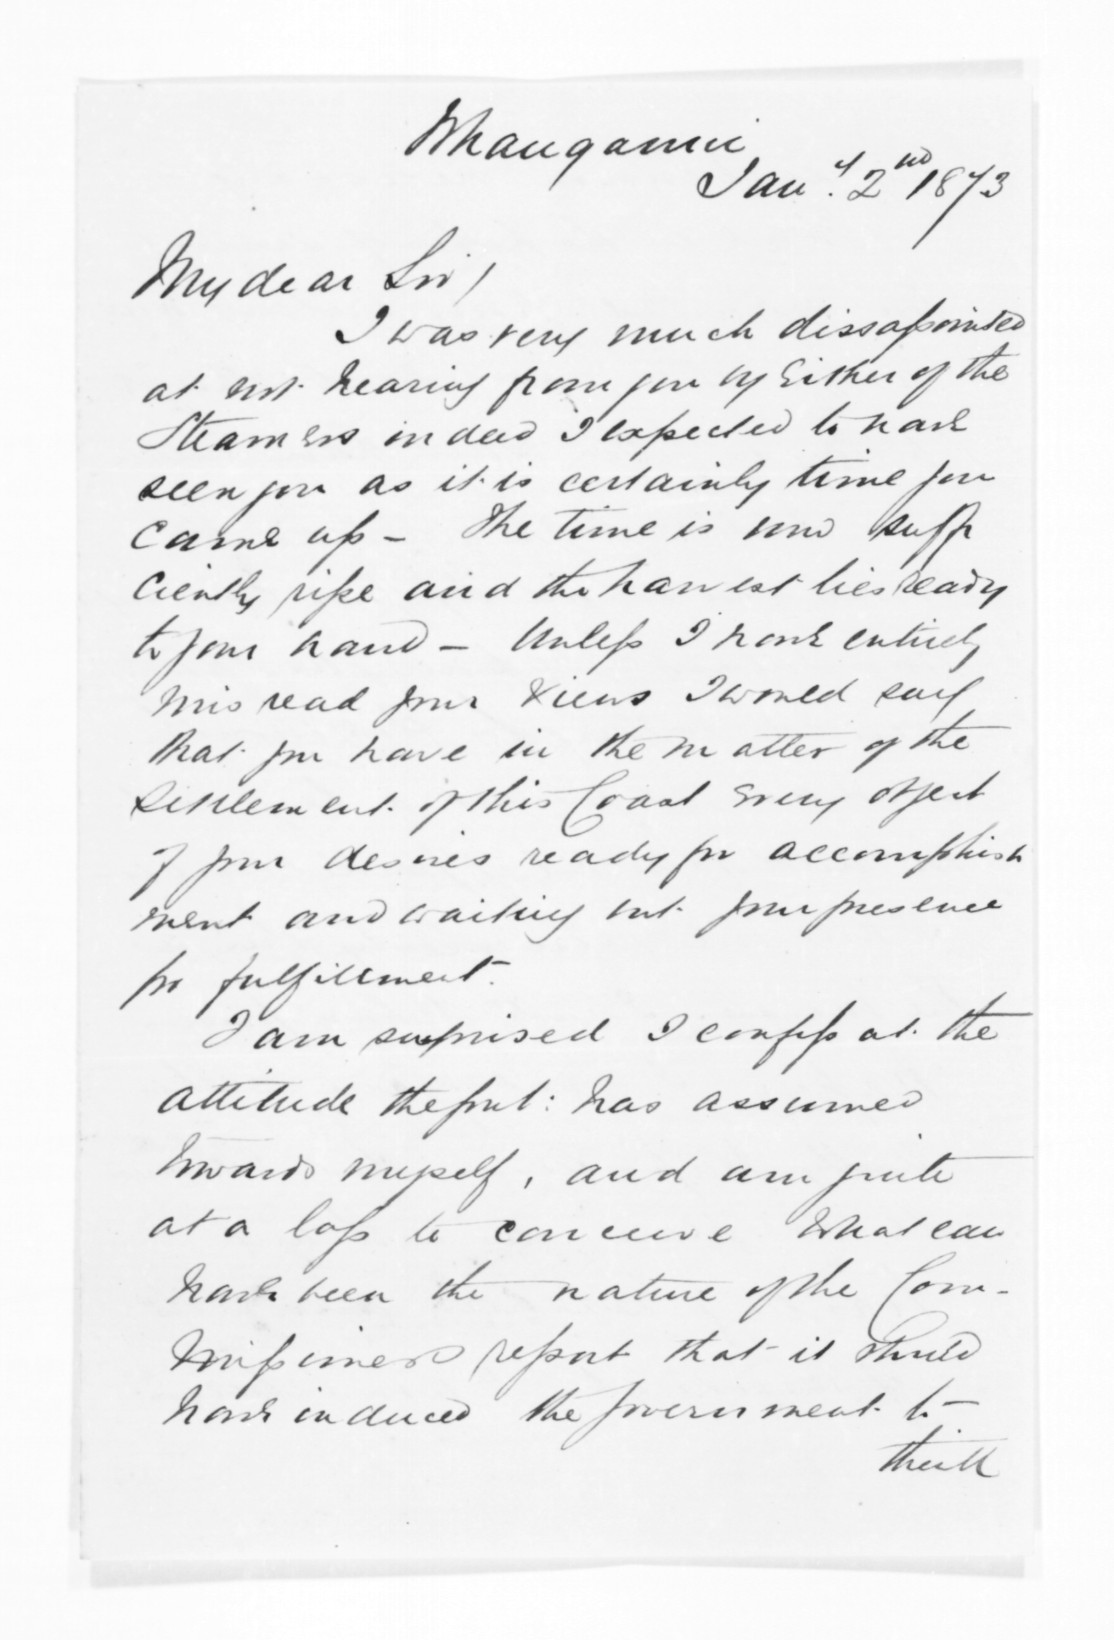 Whanganui
Jany. 2nd 1873
My dear Sir/
I was very much dissapointed
at not hearing from you by Either of the
Steamers indeed I expected to have
seen you as it is certainly time you
came up - The time is now suffi
ciently ripe and the harvest lies ready
to your hand - Unless I have entirely
misread your views I would say
that you have in the matter of the
settlement of this Coast Every object
of your desires ready for accomplish
ment and waiting but your presence
for fulfillment.
I am surprised I confess at the
attitude the govt: has assumed
towards myself, and am quite
at a loss to conceive what can
have been the nature of the Com-
missioners report that it should
have induced the government to
think